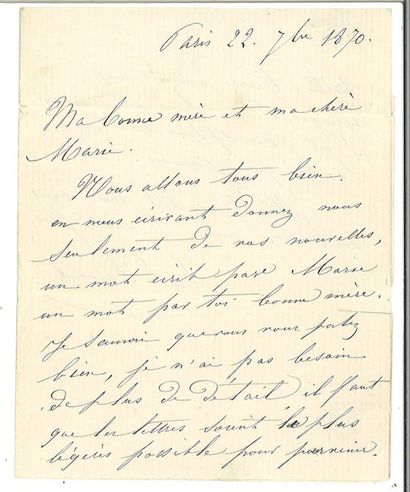 Paris 22. 7bre 1870.
Ma bonne mère et ma chère
Marie.
Nous allons tous bien.
en nous écrivant donnez nous
seulement de vos nouvelles,
un mot écrit par Marie
un mot par toi bonne mère.
Je saurai que vous vous portez
bien, je n'ai pas besoin
de plus de détail il faut
que les lettres soient le plus
légères possible pour parvenir.